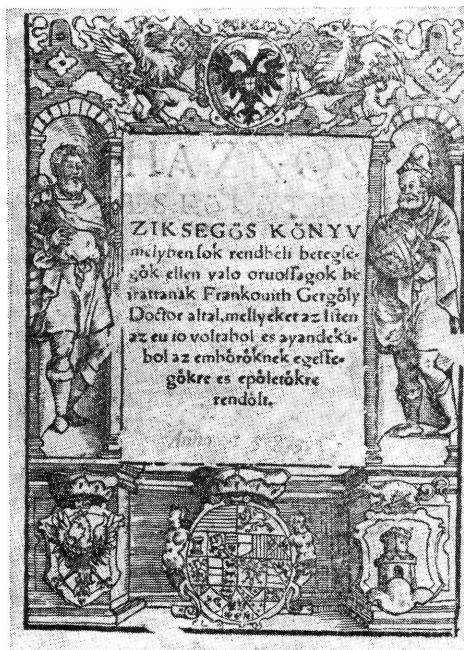 HAZNOS
ZIKSEGŐS KŐNYV
melyben sok rendbéli betegsé-
gők ellen valo oruossagok be
irattanak Frankouith Gergőly
Doctor altal, mellyeket az Isten
az eu io voltabol es ayandeká-
bol az embőrőknek egesse-
gőkre es epőletőkre
rendőlt.
Anno